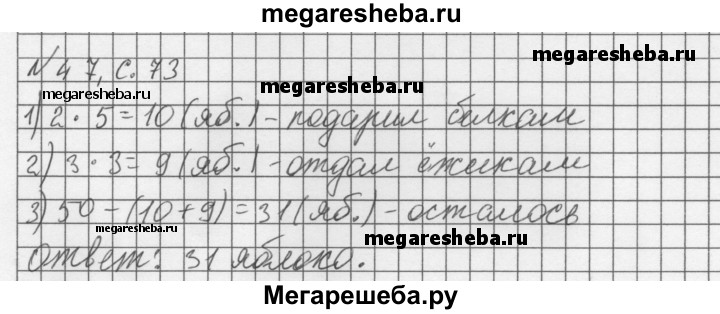 megaresheba.ru
№ 47, с. 73
megaresheba.ru
megaresheba.ru
megaresheba.ru
1) 2 · 5 = 10 (яб.) - подарил белкам
2) 3 · 3 = 9 (яб.) - отдал ёжикам
3) 50 - (10 + 9) = 31 (яб.) - осталось
megaresheba.ru
megaresheba.ru
Ответ: 31 яблоко.
Мегарешеба.ру